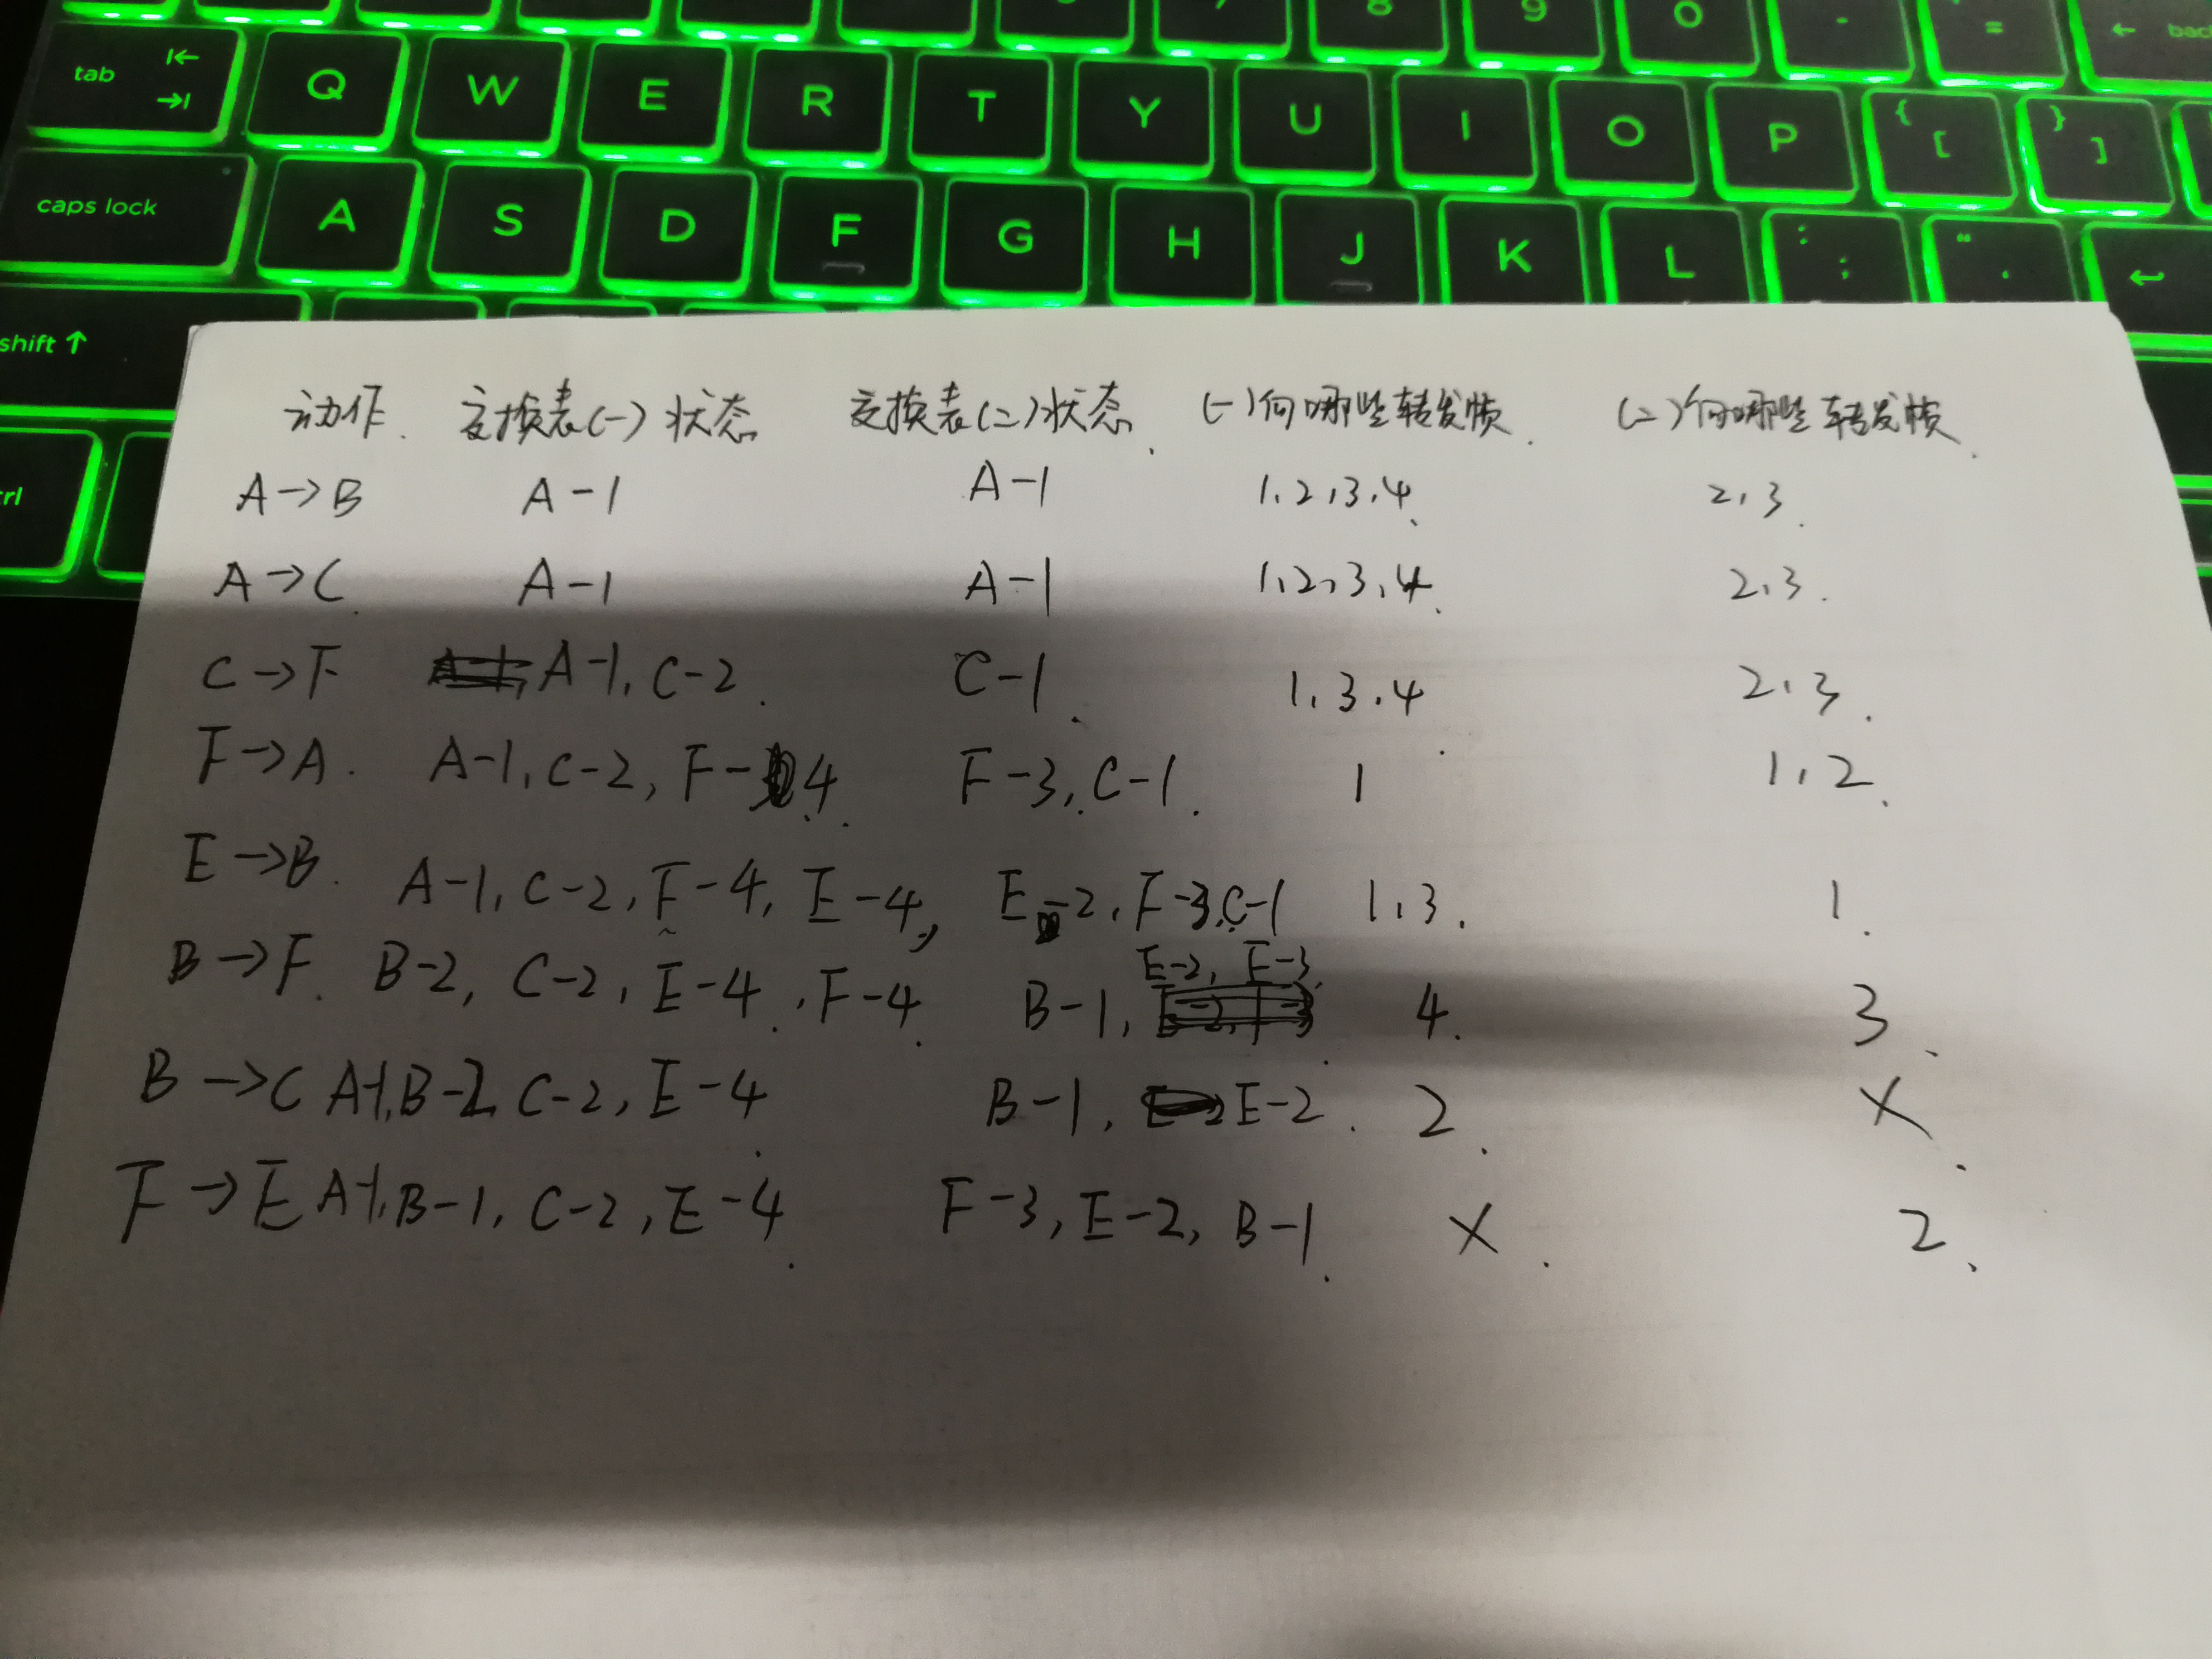 8 9 0 - = ← back
tab Q W E R T Y U I O P { [ } ]
caps lock A S D F G H J K L : ; “ ←
shift ↑
动作. 交换表(一)状态 交换表(二)状态. (一)向哪些转发帧. (二)向哪些转发帧.
A→B A-1 A-1 1,2,3,4. 2,3.
A→C. A-1 A-1 1,2,3,4. 2,3.
C→F A-1, C-2. C-1. 1,3,4 2,3.
F→A. A-1, C-2, F-4. F-3, C-1. 1 1,2.
E→B. A-1, C-2, F-4, E-4, E-2, F-3, C-1 1,3. 1.
B→F. B-2, C-2, E-4, F-4. B-1, E-2, F-3, 4. 3.
B→C A-1, B-2, C-2, E-4. B-1, E-2. 2. X.
F→E A-1, B-1, C-2, E-4. F-3, E-2, B-1. X. 2.